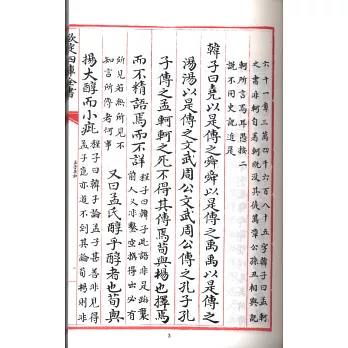 六十一章三萬四千六百八十五字韓子曰孟軻
之書非軻自著軻既沒其徒萬章公孫丑相與記
軻所言焉耳愚按二
說不同史記近是
韓子曰堯以是傳之舜舜以是傳之禹禹以是傳之
湯湯以是傳之文武周公文武周公傳之孔子孔
子傳之孟軻軻之死不得其傳焉荀與揚也擇焉
而不精語焉而不詳
程子曰韓子此語非是蹈襲
前人又非鑿空撰得出必有
所見若無所見不
知言所傳者何事
又曰孟氏醇乎醇者也荀與
揚大醇而小疵
程子曰韓子論孟子甚善非見得
孟子意亦道不到其論荀揚則非
欽定四庫全書
3